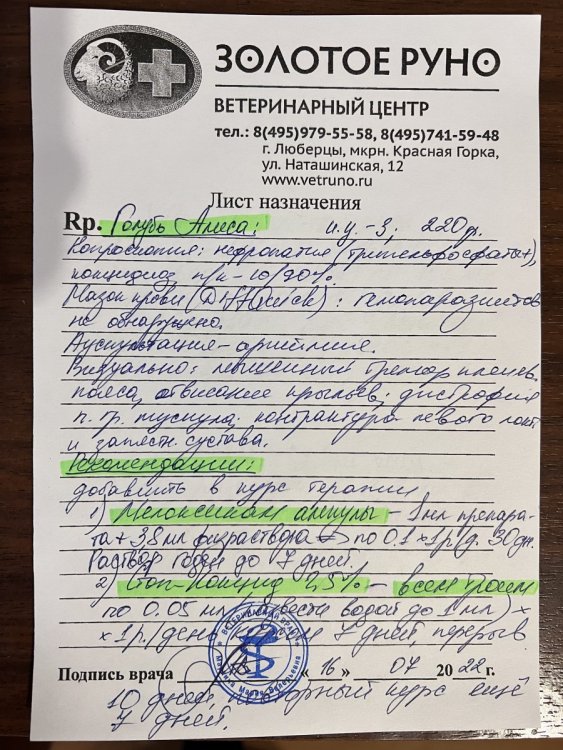 ЗОЛОТОЕ РУНО
ВЕТЕРИНАРНЫЙ ЦЕНТР
тел.: 8(495)979-55-58, 8(495)741-59-48
г. Люберцы, мкрн. Красная Горка,
ул. Наташинская, 12
www.vetruno.ru
Лист назначения
Rp. Голубь Алиса: и.у.-3; 220гр.
Копроскопия: нефропатия (трипельфосфаты+),
кокцидиоз п/к - 10/90%.
Мазок крови : гемопаразитов
не обнаружено.
Аускультация - аритмия.
Визуально: тремор плечев.
пояса, отвисание крыльев; дистрофия
п. гр. мускула, контрактура левого локт.
и запястн. сустава.
Рекомендации:
добавить в курс терапии
1) Мелоксикам ампулы - 1мл препара-
та + 3.8 мл физраствора по 0.1 х 1р/д. 30дн.
Раствор годен до 7 дней.
2) Стоп-кокцид 2,5% - всем троем
по 0.05 мл (развести водой до 1 мл) х
х 1р/день 7 дней, перерыв
Подпись врача «16» 07 2022г.
10 дней, повторный курс ещё
7 дней.